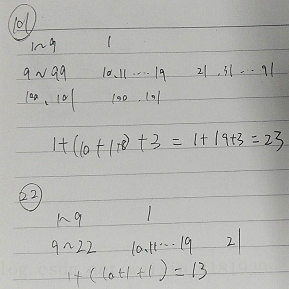 101
1~9 1
9~99 10.11....19 21.31...91
100.101 100.101
1+(10+1+8)+3=1+19+3=23
22
1~9 1
9~22 10.11...19 21
1+(10+1+1)=13